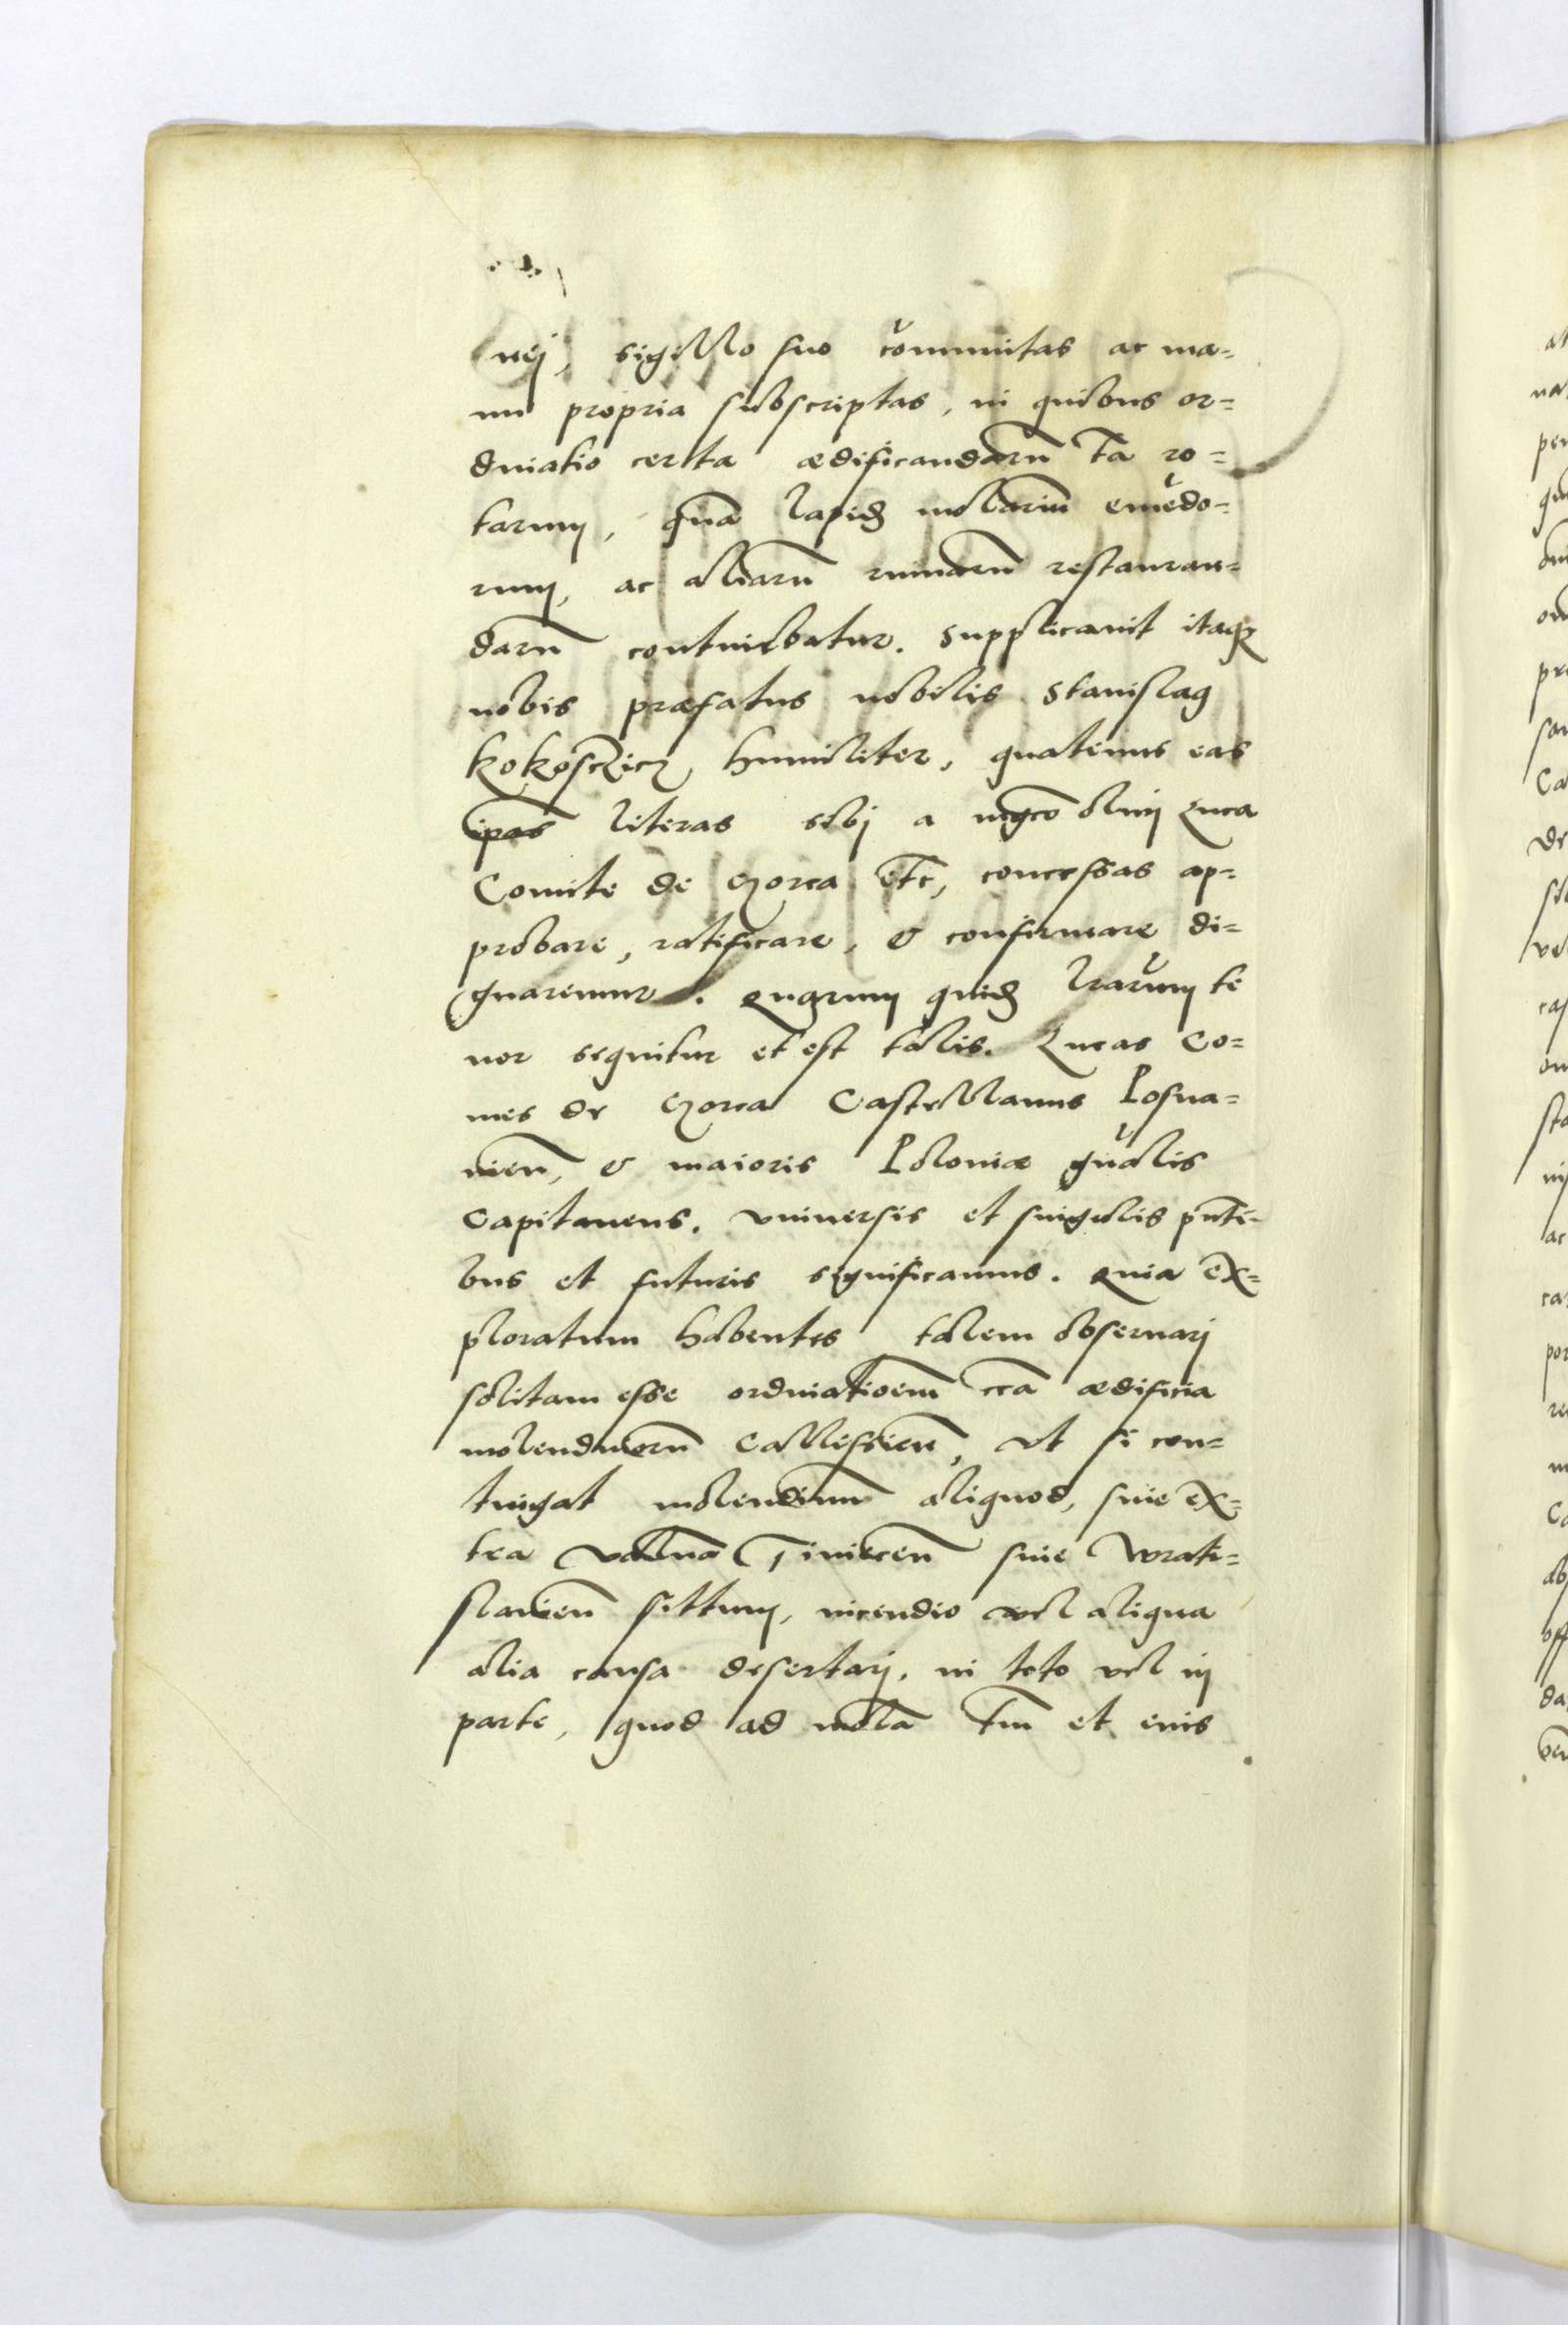 nej, sigillo suo com̃unitas ac ma=
nu propria subscriptas, in quibus or=
dinatio certa ædificandarũ tã ro=
tarum, quã lapid molariũ emẽdo=
rum, ac aliarũ ruinarũ restauran=
darũ continebatur. Supplicauit itaq
nobis præfatus nobilis Stanislaus
Kokosczicz humiliter, quatenus eas
ip̃as literas sibj a mgco olim Luca
Comite de Gorca etc, concessas ap=
probare, ratificare, & confirmare di=
gnaremur. Quarum quid lrarum te
nor sequitur et est talis. Lucas Co=
mes de Gorca Castellanus Posna=
nien̄, & maioris Poloniæ gñalis
Capitaneus. Vniuersis et singulis pñti=
bus et futuris significamus. Quia ex=
ploratum habentes talem obseruarj
solitam esse ordinatioem̄ cca ædificia
molendinorũ Callissien̄, vt si con=
tingat molendinum aliquod, siue ex=
tra valuã siue Wrati=
slauien̄ sittum, incendio vel aliqua
alia causa desertarj, in toto vel in
parte, quod ad molã tm̄ et eius